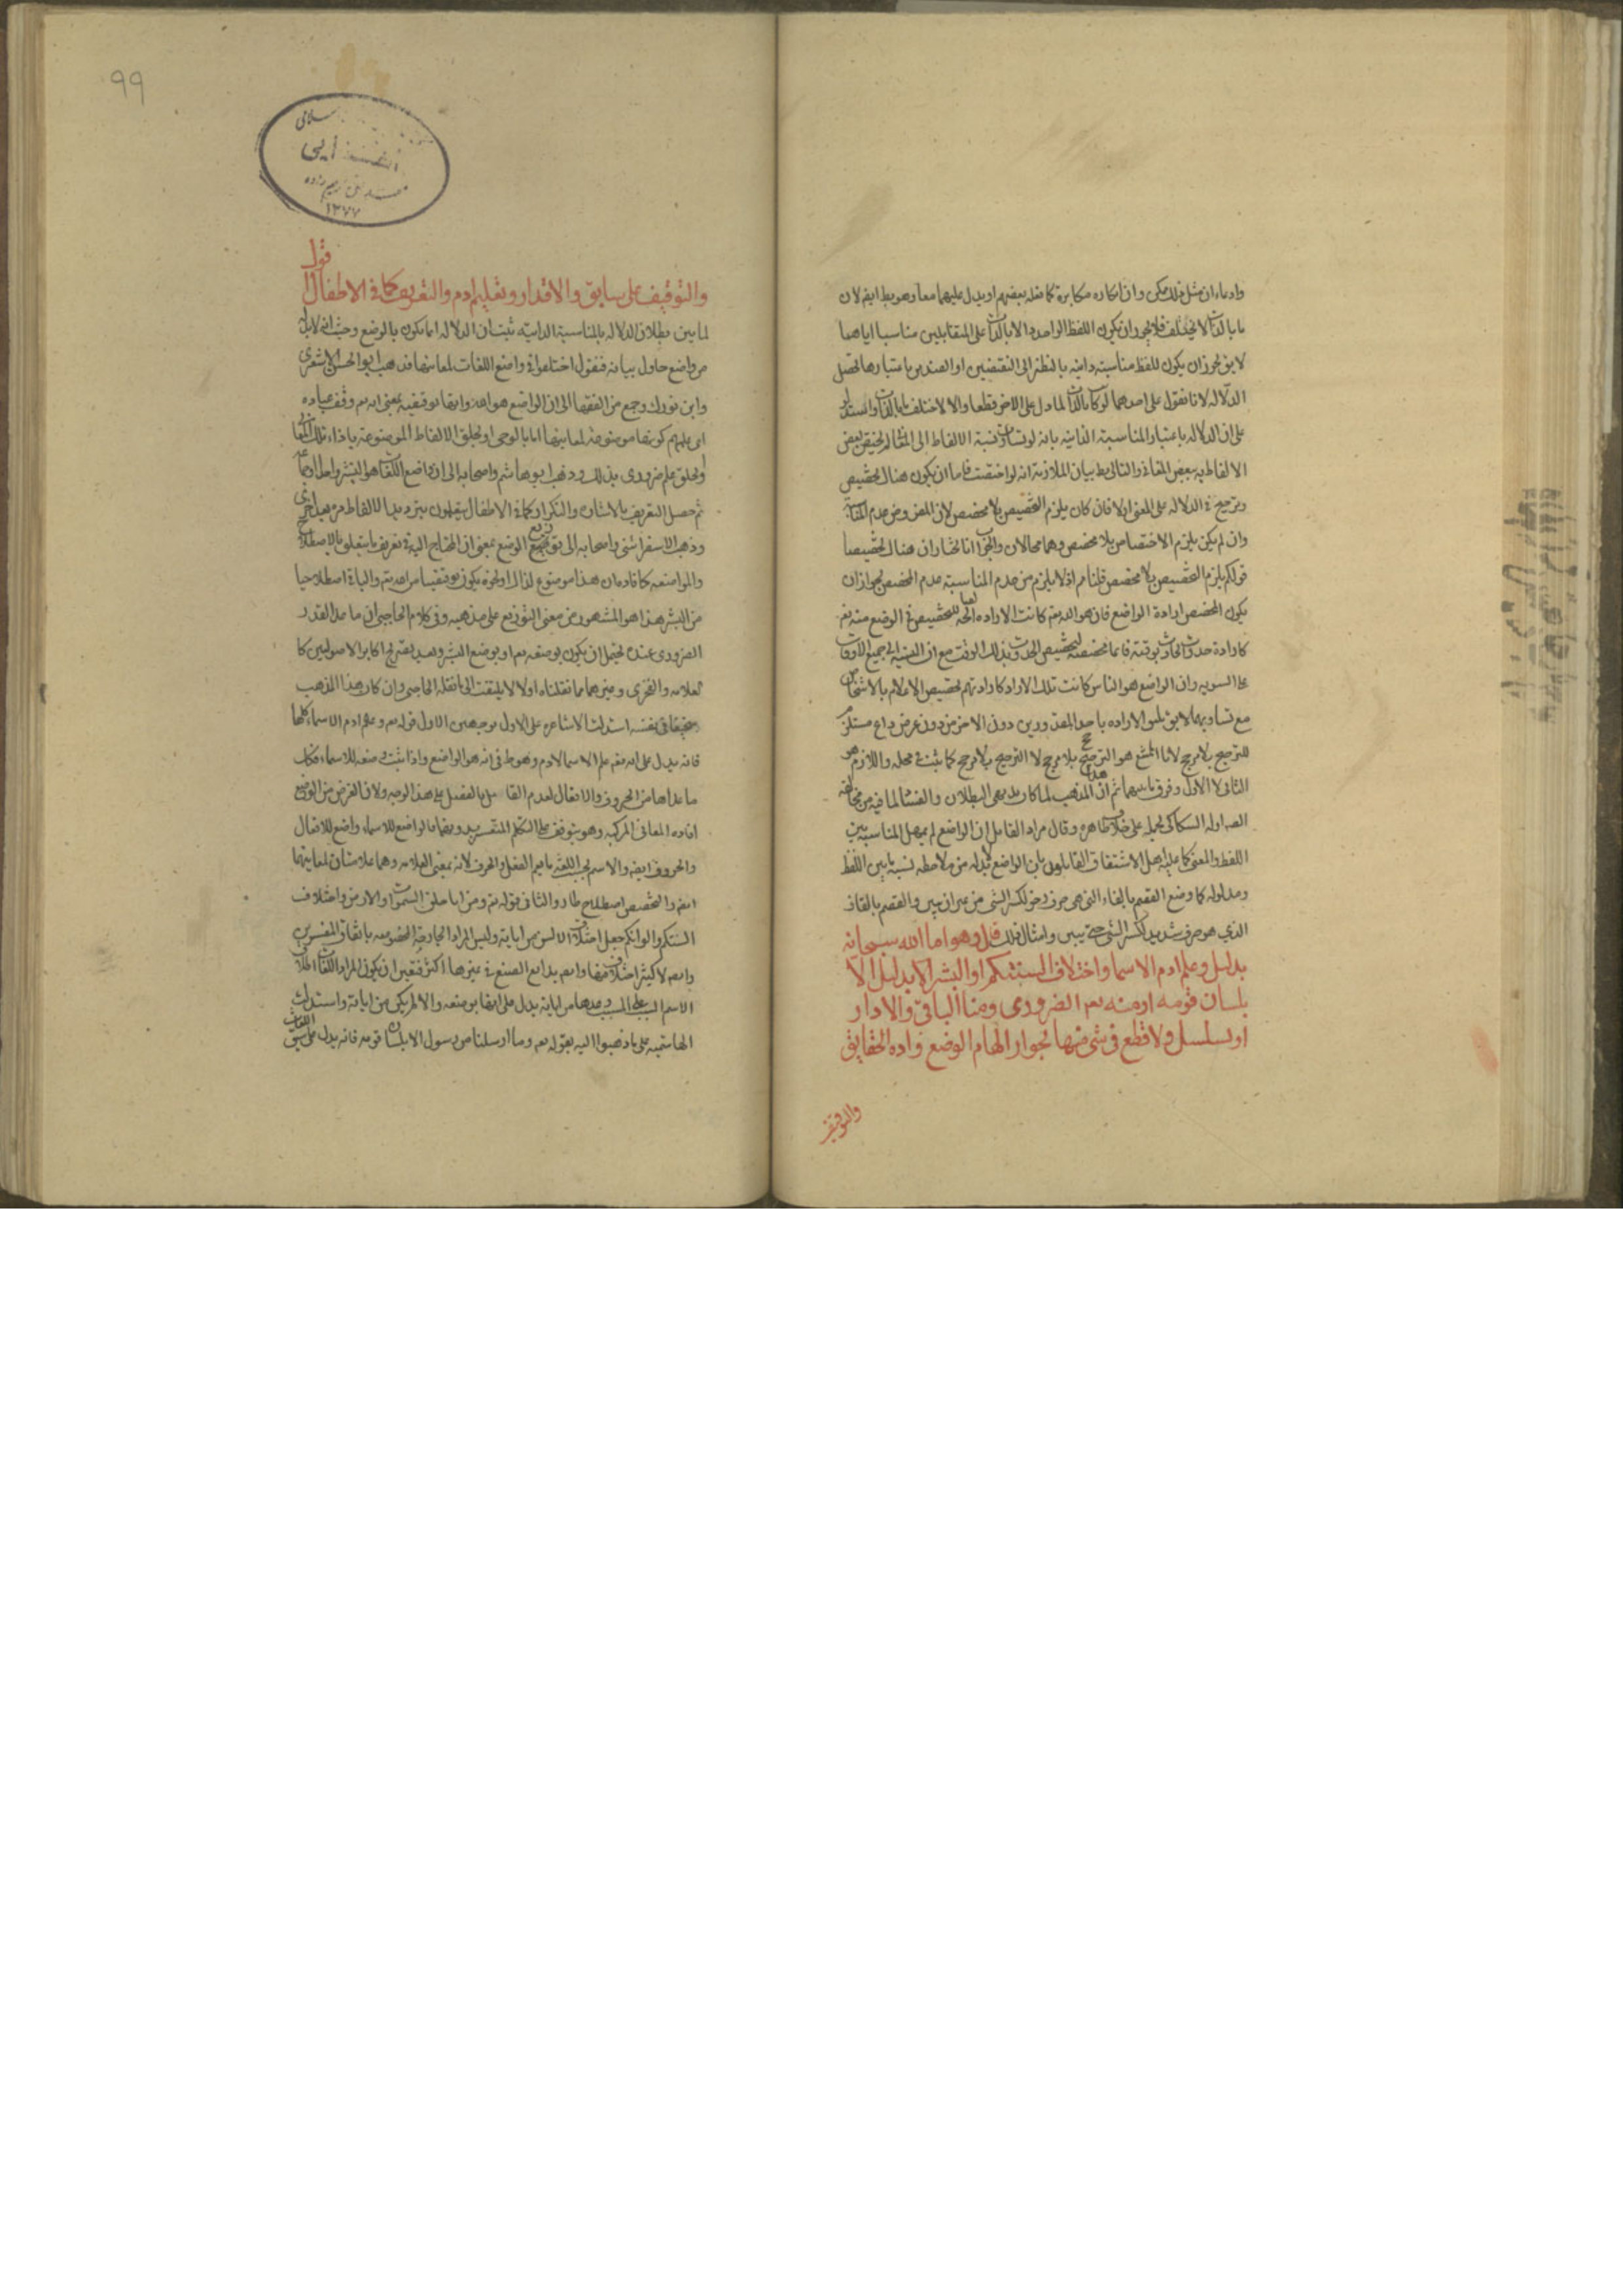 وادعاء ان مثل ذلك ممكن وان انكاره مكابرة كما نقله بعضهم او يدل عليهما معا وهو بط ايضا لان
ما بالذات لا يختلف فلا يجوز ان يكون اللفظ الواحد دالا بالذات على المتقابلين مناسبا اياهما
لا يق يجوز ان يكون للفظ مناسبة ذاتية بالنظر الى النقيضين او الضدين باعتبارها تحصل
الدلالة لانا نقول على احدهما لو كان بالذات لما دل على الاخر قطعا والا لاختلف ما بالذات واستدل
على ان الدلالة باعتبار المناسبة الذاتية بانه لو تساوت نسبة الالفاط الى المعا لم يختص بعض
الالفاط ببعض المعاني والتالي بط بيان الملازمة انه لو اختصت فاما ان يكون هناك تخصيص
وترجيح في الدلالة على المعنى او لا فان كان يلزم التخصيص بلا مخصص لان المفروض عدم المناسبة
وان لم يكن يلزم الاختصاص بلا مخصص وهما محالان والجواب انا نختار ان هناك تخصيصا
قولكم يلزم التخصيص بلا مخصص قلنا مم اذ لا يلزم من عدم المناسبة عدم المخصص لجواز ان
يكون المخصص ارادة الواضع فان هو الله تعم كانت الارادة للتخصيص في الوضع منه تعم
كارادة حدوث الحادث بوقته فانها مخصصة لتخصيص الحدوث بذلك الوقت مع ان النسبة الى جميع الاوقات
على السوية وان الواضع هو الناس كانت تلك الارادة كارادتهم تخصيص الاعلام بالاشخاص
مع تساويهما لا يق تعلق الارادة باحد المقدورين دون الاخر من دون عرض داع مستلزم
للترجيح بلا مرجح لانا الممتنع هو الترجح بلا مرجح لا الترجيح بلا مرجح كما ثبت في محله واللازم هو
الثاني لا الاول وفرق ما بينهما ثم ان هذا المذهب لما كان بديهي البطلان والفساد لما فيه من مخالفة
اوله السكاكي بحمله على خلاف ظاهره وقال مراد القايل ان الواضع لم يهمل المناسبة بين
اللفظ والمعنى كما عليه اهل الاشتقاق القايلون بان الواضع لا بد له من ملاحظة نسبة ما بين اللفظ
ومدلوله كما وضع الفصم بالفاء التي هي حرف رخو لكسر الشي من غير ان يبين والقصم بالقاف
الذي هو حرف شديد لكسر الشي حتى يبين وامثال ذلك قال وهو اما الله سبحانه
بدليل وعلم ادم الاسما واختلاف السنتكم او البشر بدليل الا
بلسان قومه او منه تعم الضروري ومنا الباقي والا دار
او تسلسل ولا قطع في شي منها لجواز الهام الوضع وارادة الحقايق
والتوقيف
٩٩
١٣٧٧
قول
والتوقيف على سابق والاقدار وتعليم ادم والتعريف كما في الاطفال
لما بين بطلان الدلالة بالمناسبة الذاتية ثبت ان الدلالة انما يكون بالوضع وحيث انه لا بد له
من واضع حاول بيانه فنقول اختلفوا في واضع اللغات لمعانيها فذهب ابو الحسن الاشعري
وابن فورك وجمع من الفقها الى ان الواضع هو الله وانها توقيفية بمعنى انه تعم وقف عباده
اي علمهم كونها موضوعة لمعانيها اما بالوحي او بخلق الالفاظ الموضوعة بازاء تلك المعاني
او بخلق علم ضروري بذلك وذهب ابو هاشم واصحابه الى ان واضع اللغات هو البشر واحدا او جماعة
ثم حصل التعريف بالاشارة والتكرار كما في الاطفال يتعلمون بترديد الالفاظ مرة بعد اخرى
وذهب الاسفرايني واصحابه الى توزيع الوضع بمعنى ان المحتاج اليه في تعريف ما يتعلق بالاصطلاح
والمواضعة كافادة ان هذا موضوع لذاك او نحوه يكون توقيفيا من الله تعم والباقي اصطلاحيا
من البشر هذا هو المشهور من معنى التوزيع على مذهبه وفي كلام الحاجبي ان ما عدا القدر
الضروري عنده يحتمل ان يكون بوضعه تعم او بوضع البشر وبعد تصريح اكابر الاصوليين كا
لعلامه والفخري وغيرهما مما نقلناه اولا لا يلتفت الى ما نقله الحاجبي وان كان هذا المذهب
سخيفا في نفسه استدلت الاشاعره على الاول بوجهين الاول قوله تعم وعلم ادم الاسماء كلها
فانه يدل على انه تعم علم الاسما لادم وهو ظ في انه هو الواضع واذا ثبت وضعه للاسماء فكذا
ما عداها من الحروف والافعال لعدم القايل بالفصل على هذا الوجه ولان الغرض من الوضع
افاده المعاني المركبه وهو يتوقف على التكلم المتعسر بدونهما فالواضع للاسماء واضع للافعال
والحروف ايضا والاسم بحسب اللغة ما يعم الفعل والحرف لانه بمعنى العلامة وهما علامتان لمعانيهما
ايضا والتخصيص اصطلاح طار والثاني قوله تعم ومن اياته خلق السموات والارض واختلاف
السنتكم والوانكم جعل اختلاف الالسن من اياته وليس المراد الجارحة المخصوصة باتفاق المفسرين
واذ لا كثير اختلاف فيها وانه بدايع الصنع في غيرها اكثر فتعين ان يكون المراد اللغات اطلاق
الاسم السبب على المسبب وعدها من اياته يدل على انها بوضعه والا لم يكن من اياته واستدلت
البهاشمية على ما ذهبوا اليه بقوله تعم وما ارسلنا من رسول الا بلسان قومه فانه يدل على سبق اللغات